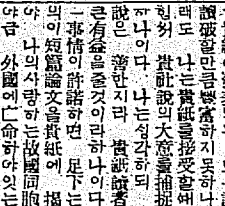 讀破할만큼豐富하지못하나
래도 나는貴紙를接受할때
힘써 貴社說의大意를捕捉
나이다 나는성각하되
說은 薄한지라 貴紙讀者
큰有益을줄것이라하나이다
事情이許諾하면 足下는
의이短篇論文을貴紙에 揭
야 나의사랑하는故國同胞
야금 外國에亡命하야잇는